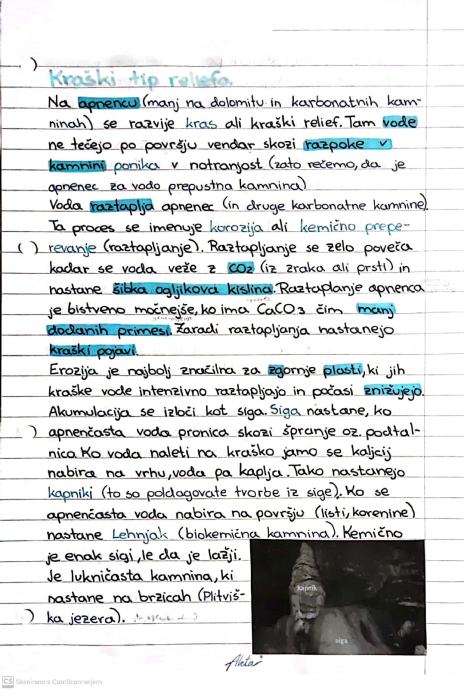 Kraški tip reliefa.
Na apnencu (manj na dolomitu in karbonatnih kam-
ninah) se razvije kras ali kraški relief. Tam vode
ne tečejo po površju vendar skozi razpoke v
kamnini ponika v notranjost (zato rečemo, da je
apnenec za vodo prepustna kamnina)
Voda raztaplja apnenec (in druge karbonatne kamnine).
Ta proces se imenuje korozija ali kemično prepe-
revanje (raztapljanje). Raztapljanje se zelo poveča
kadar se voda veže z CO2 (iz zraka ali prsti) in
nastane šibka ogljikova kislina. Raztaplanje apnenca
je bistveno močnejše, ko ima CaCO3 čim manj
dodanih primesi. Zaradi raztapljanja nastanejo
kraški pojavi.
Erozija je najbolj značilna za zgornje plasti, ki jih
kraške vode intenzivno raztapljajo in počasi znižujejo.
Akumulacija se izloči kot siga. Siga nastane, ko
apnenčasta voda pronica skozi špranje oz. podtal-
nica. Ko voda naleti na kraško jamo se kalcij
nabira na vrhu, voda pa kaplja. Tako nastanejo
kapniki (to so poldagovate tvorbe iz sige). Ko se
apnenčasta voda nabira na površju (listi, korenine)
nastane Lehnjak (biokemična kamnina). Kemično
je enak sigi, le da je lažji.
Je lukničasta kamnina, ki
nastane na brzicah (Plitviš-
ka jezera).
kapnik
siga
CS Skenirano s CamScannerjem